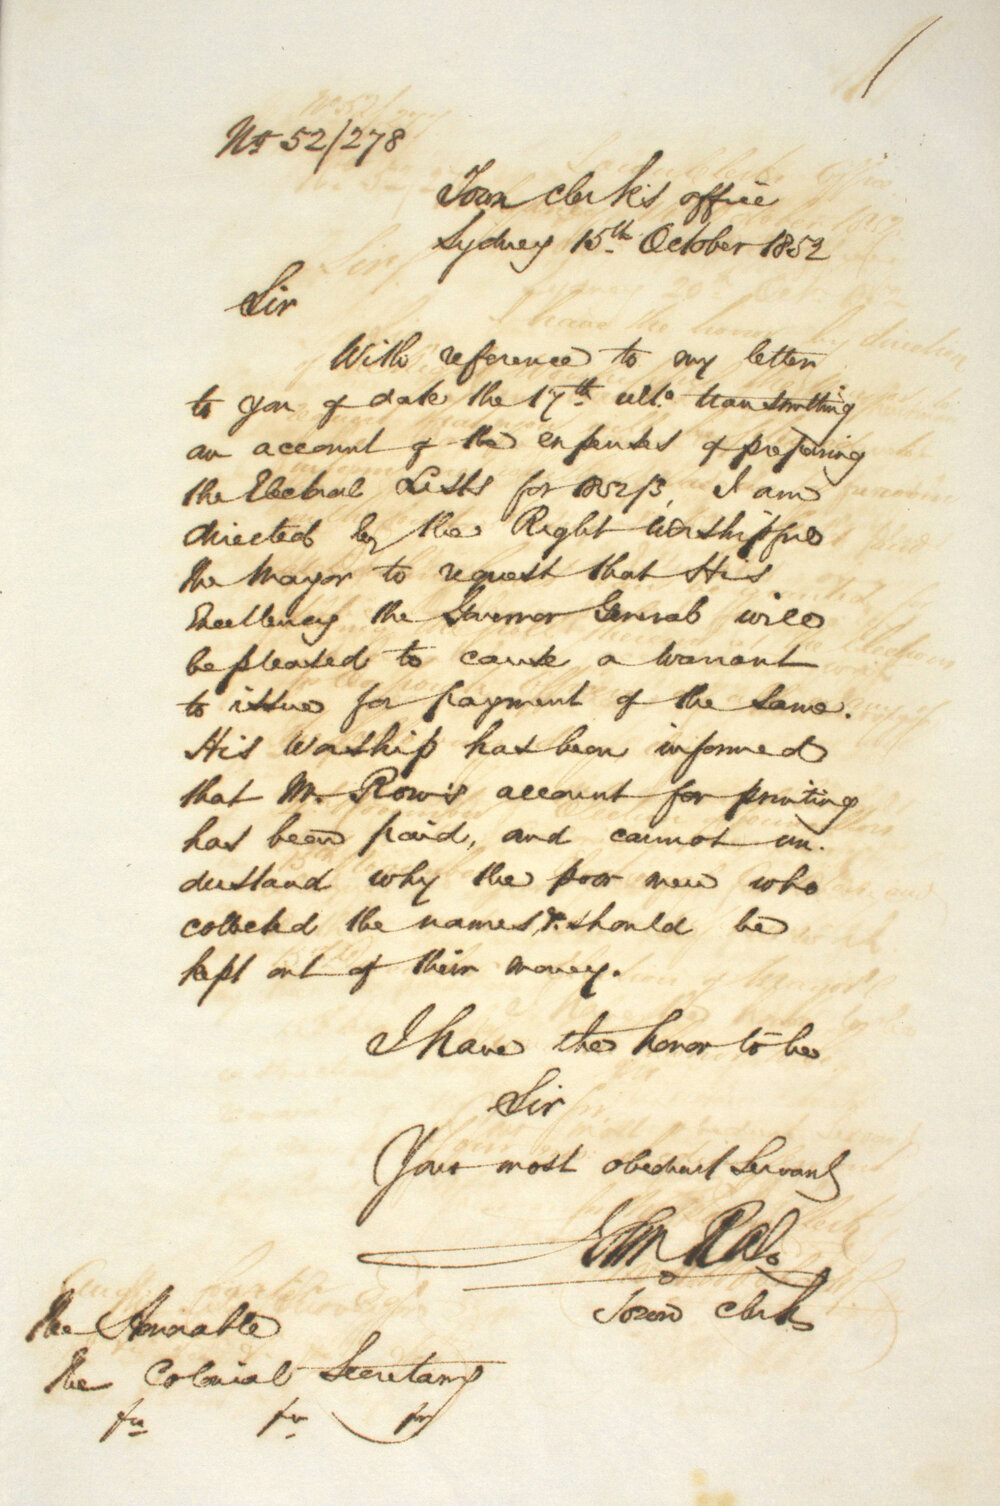 No 52/278
Town Clerk's office
Sydney 15th October 1852
Sir
With reference to my letter
to you of date the 17th ulto. transmitting
an account of the expenses of preparing
the Electoral Lists for 1852/3, I am
directed by the Right Worshipful
the Mayor to request that His
Excellency the Governor General will
be pleased to cause a Warrant
to issue for payment of the same.
His Worship has been informed
that Mr. Row's account for printing
has been paid, and cannot un-
derstand why the poor men who
collected the names &c. should be
kept out of their money.
I have the honor to be
Sir
Your most obedient Servant
John Rae
Town Clerk
The Honorable
The Colonial Secretary